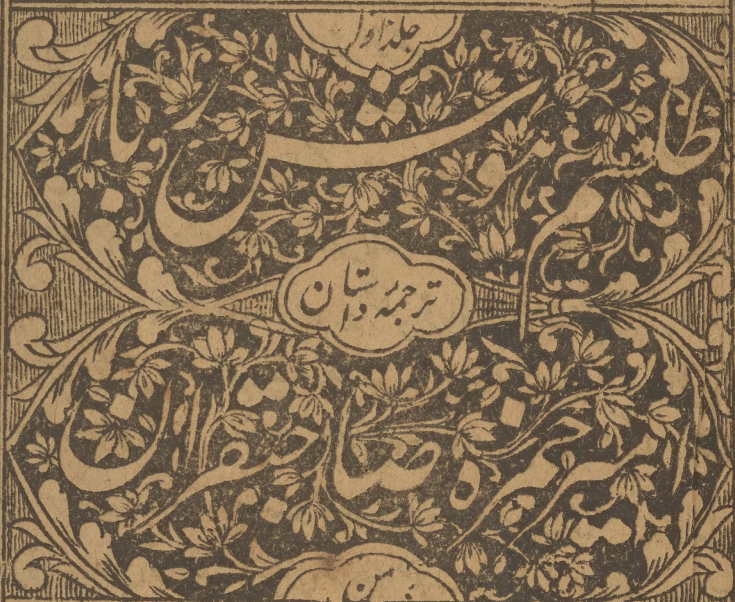 جلد اول
طلسم ہوش ربا
ترجمۂ داستان
امیر حمزہ صاحبقران